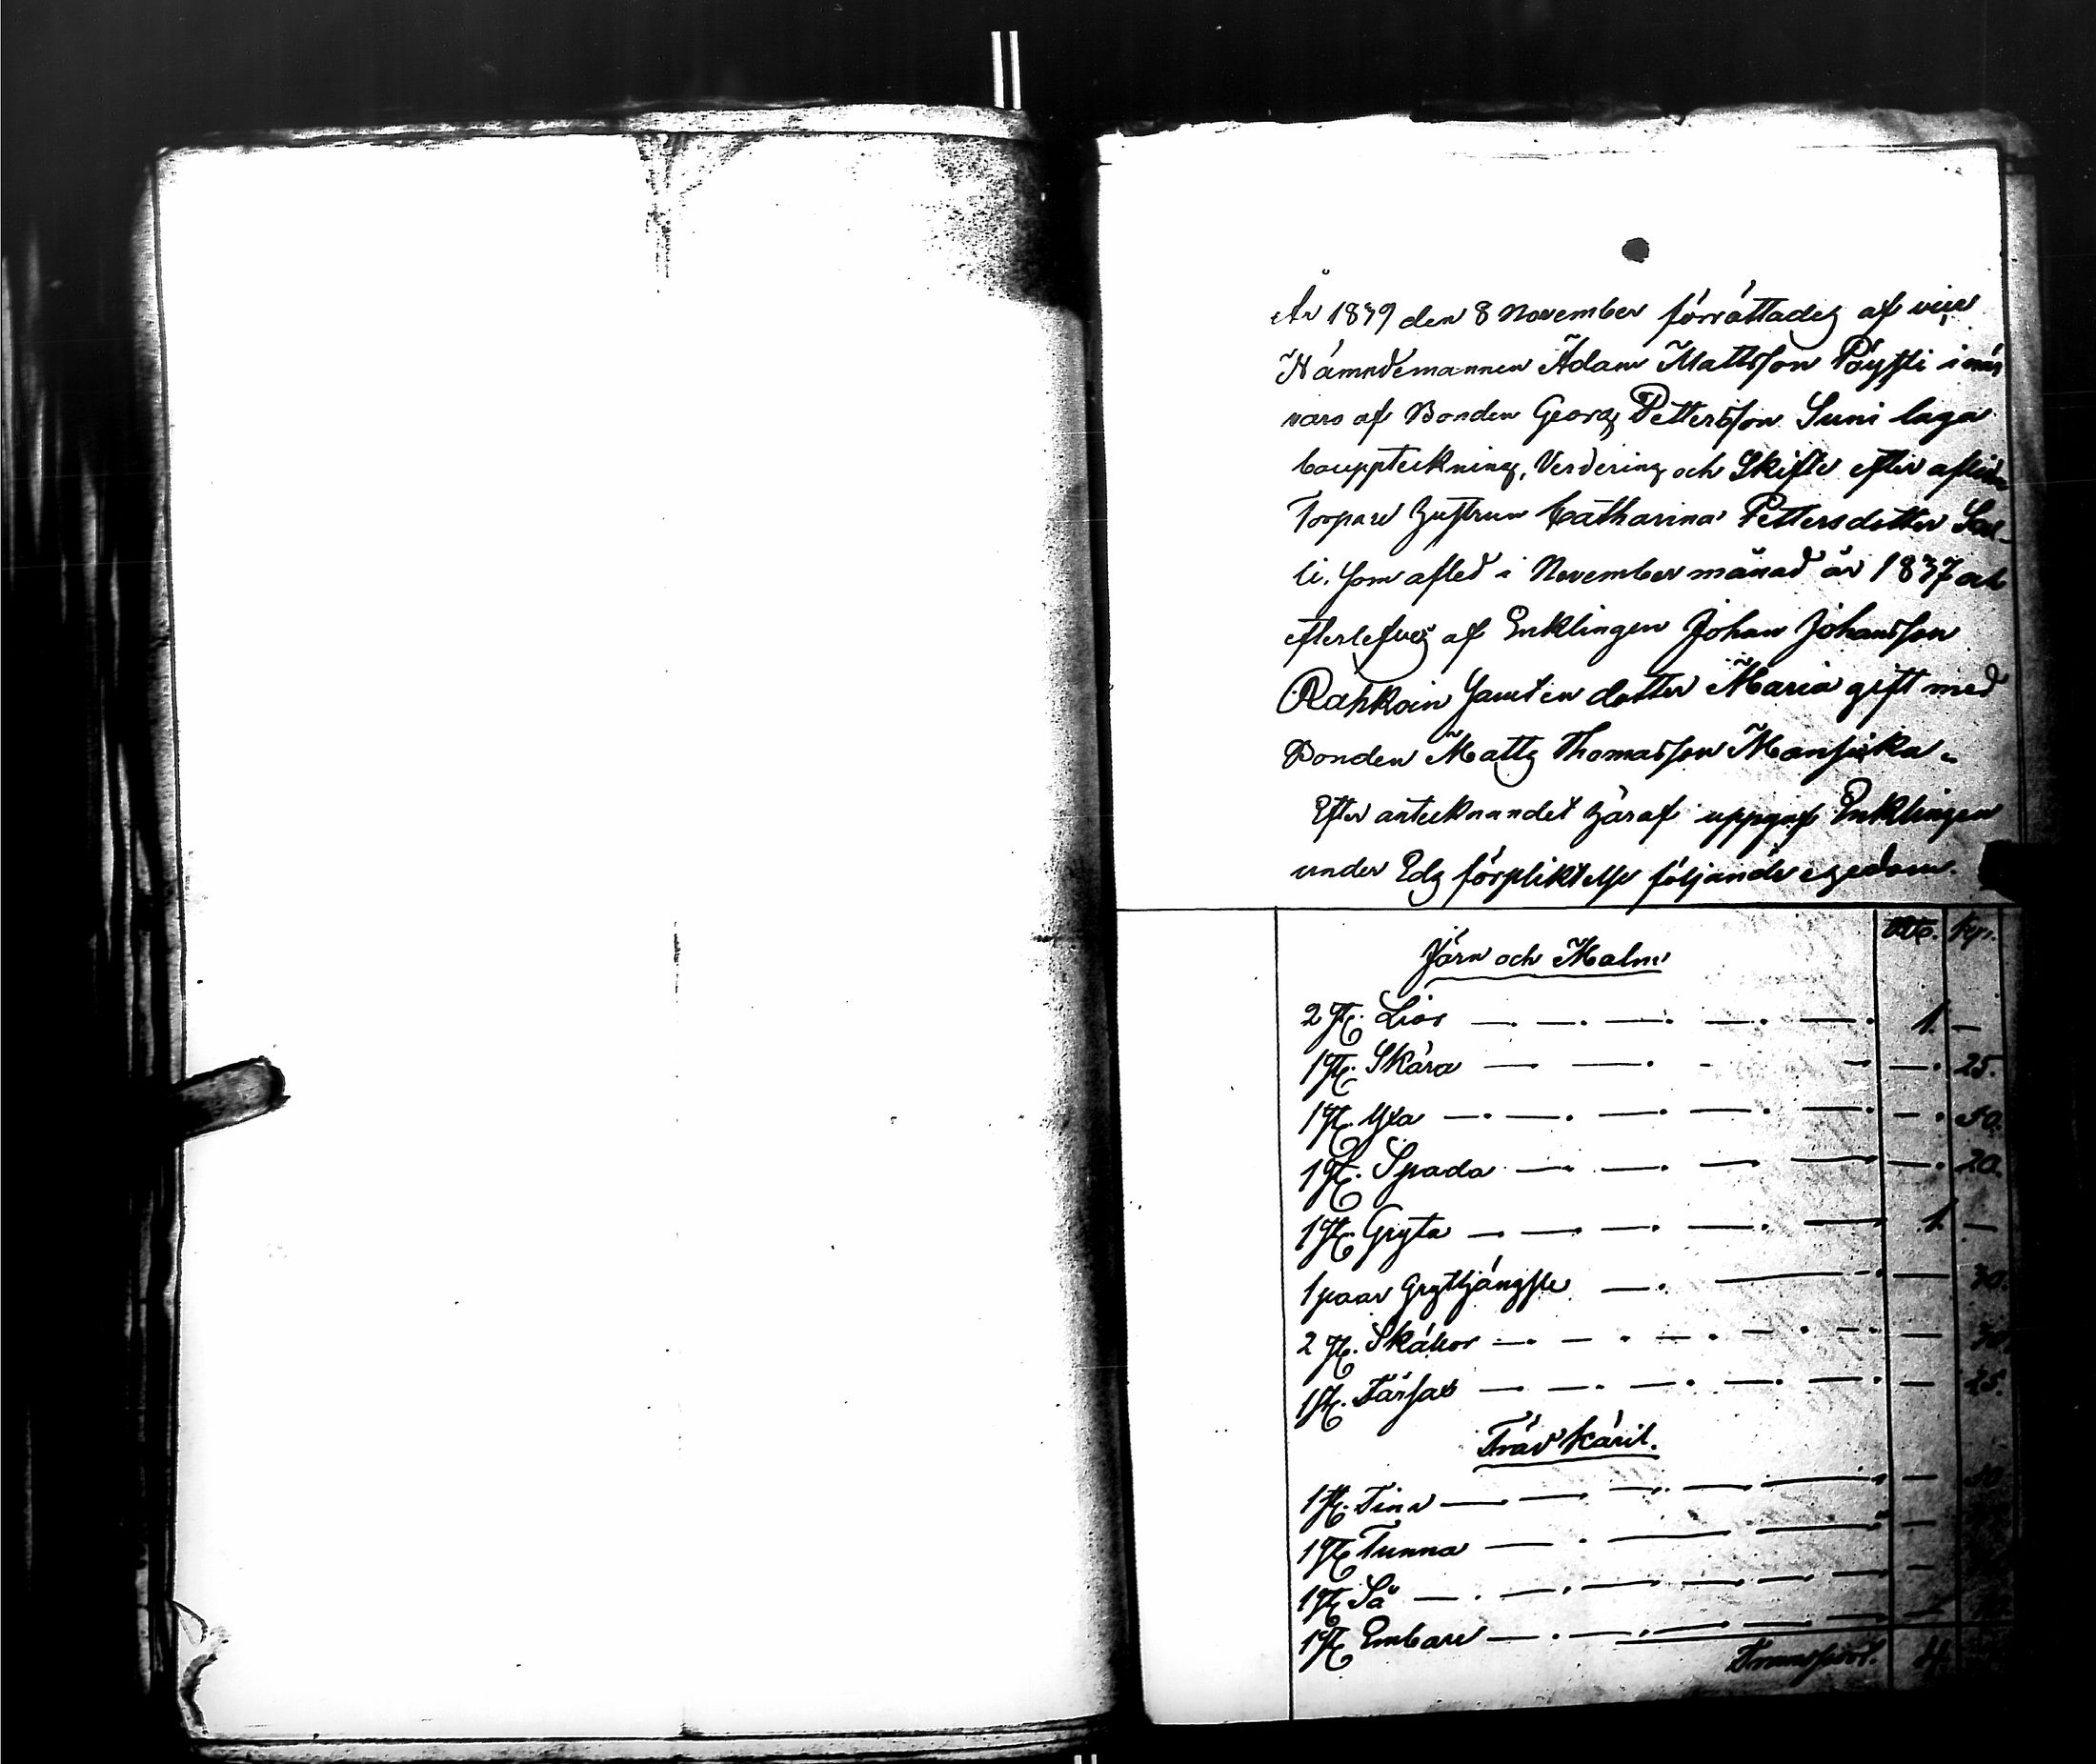 År 1839 den 8 November förrättades af
Nämndemannen Adam Mattsson Pöysti i när
varo af Bonden Georg Pettersson Suni laga
bouppteckning, Verdering och Skifte efter aflidn
Torpare hustrun Catharina Pettersdotter
som afled i November månad år 1837 och
efterlefves af Enklingen Johan Johansson
Rahkoin samt en dotter Maria gift med
Bonden Matts Thomasson Mansikka.
Efter antecknandet häraf uppgaf Enklingen
under Eds förpliktelse följande egedom.
Järn och Malm Kp.
2 st. Liar — 1. —
1 st. Skära — — 25.
1 st. Yxa — — 50.
1 st. Spada — — 20.
1 st. Gryta — 1. —
1 paar — —
2 st. — —
1 st. — — 25.
Träd käril.
1 st. Tina — —
1 st. Tunna — —
1 st. Så — —
1 st. Embare — —
Transport. 4.